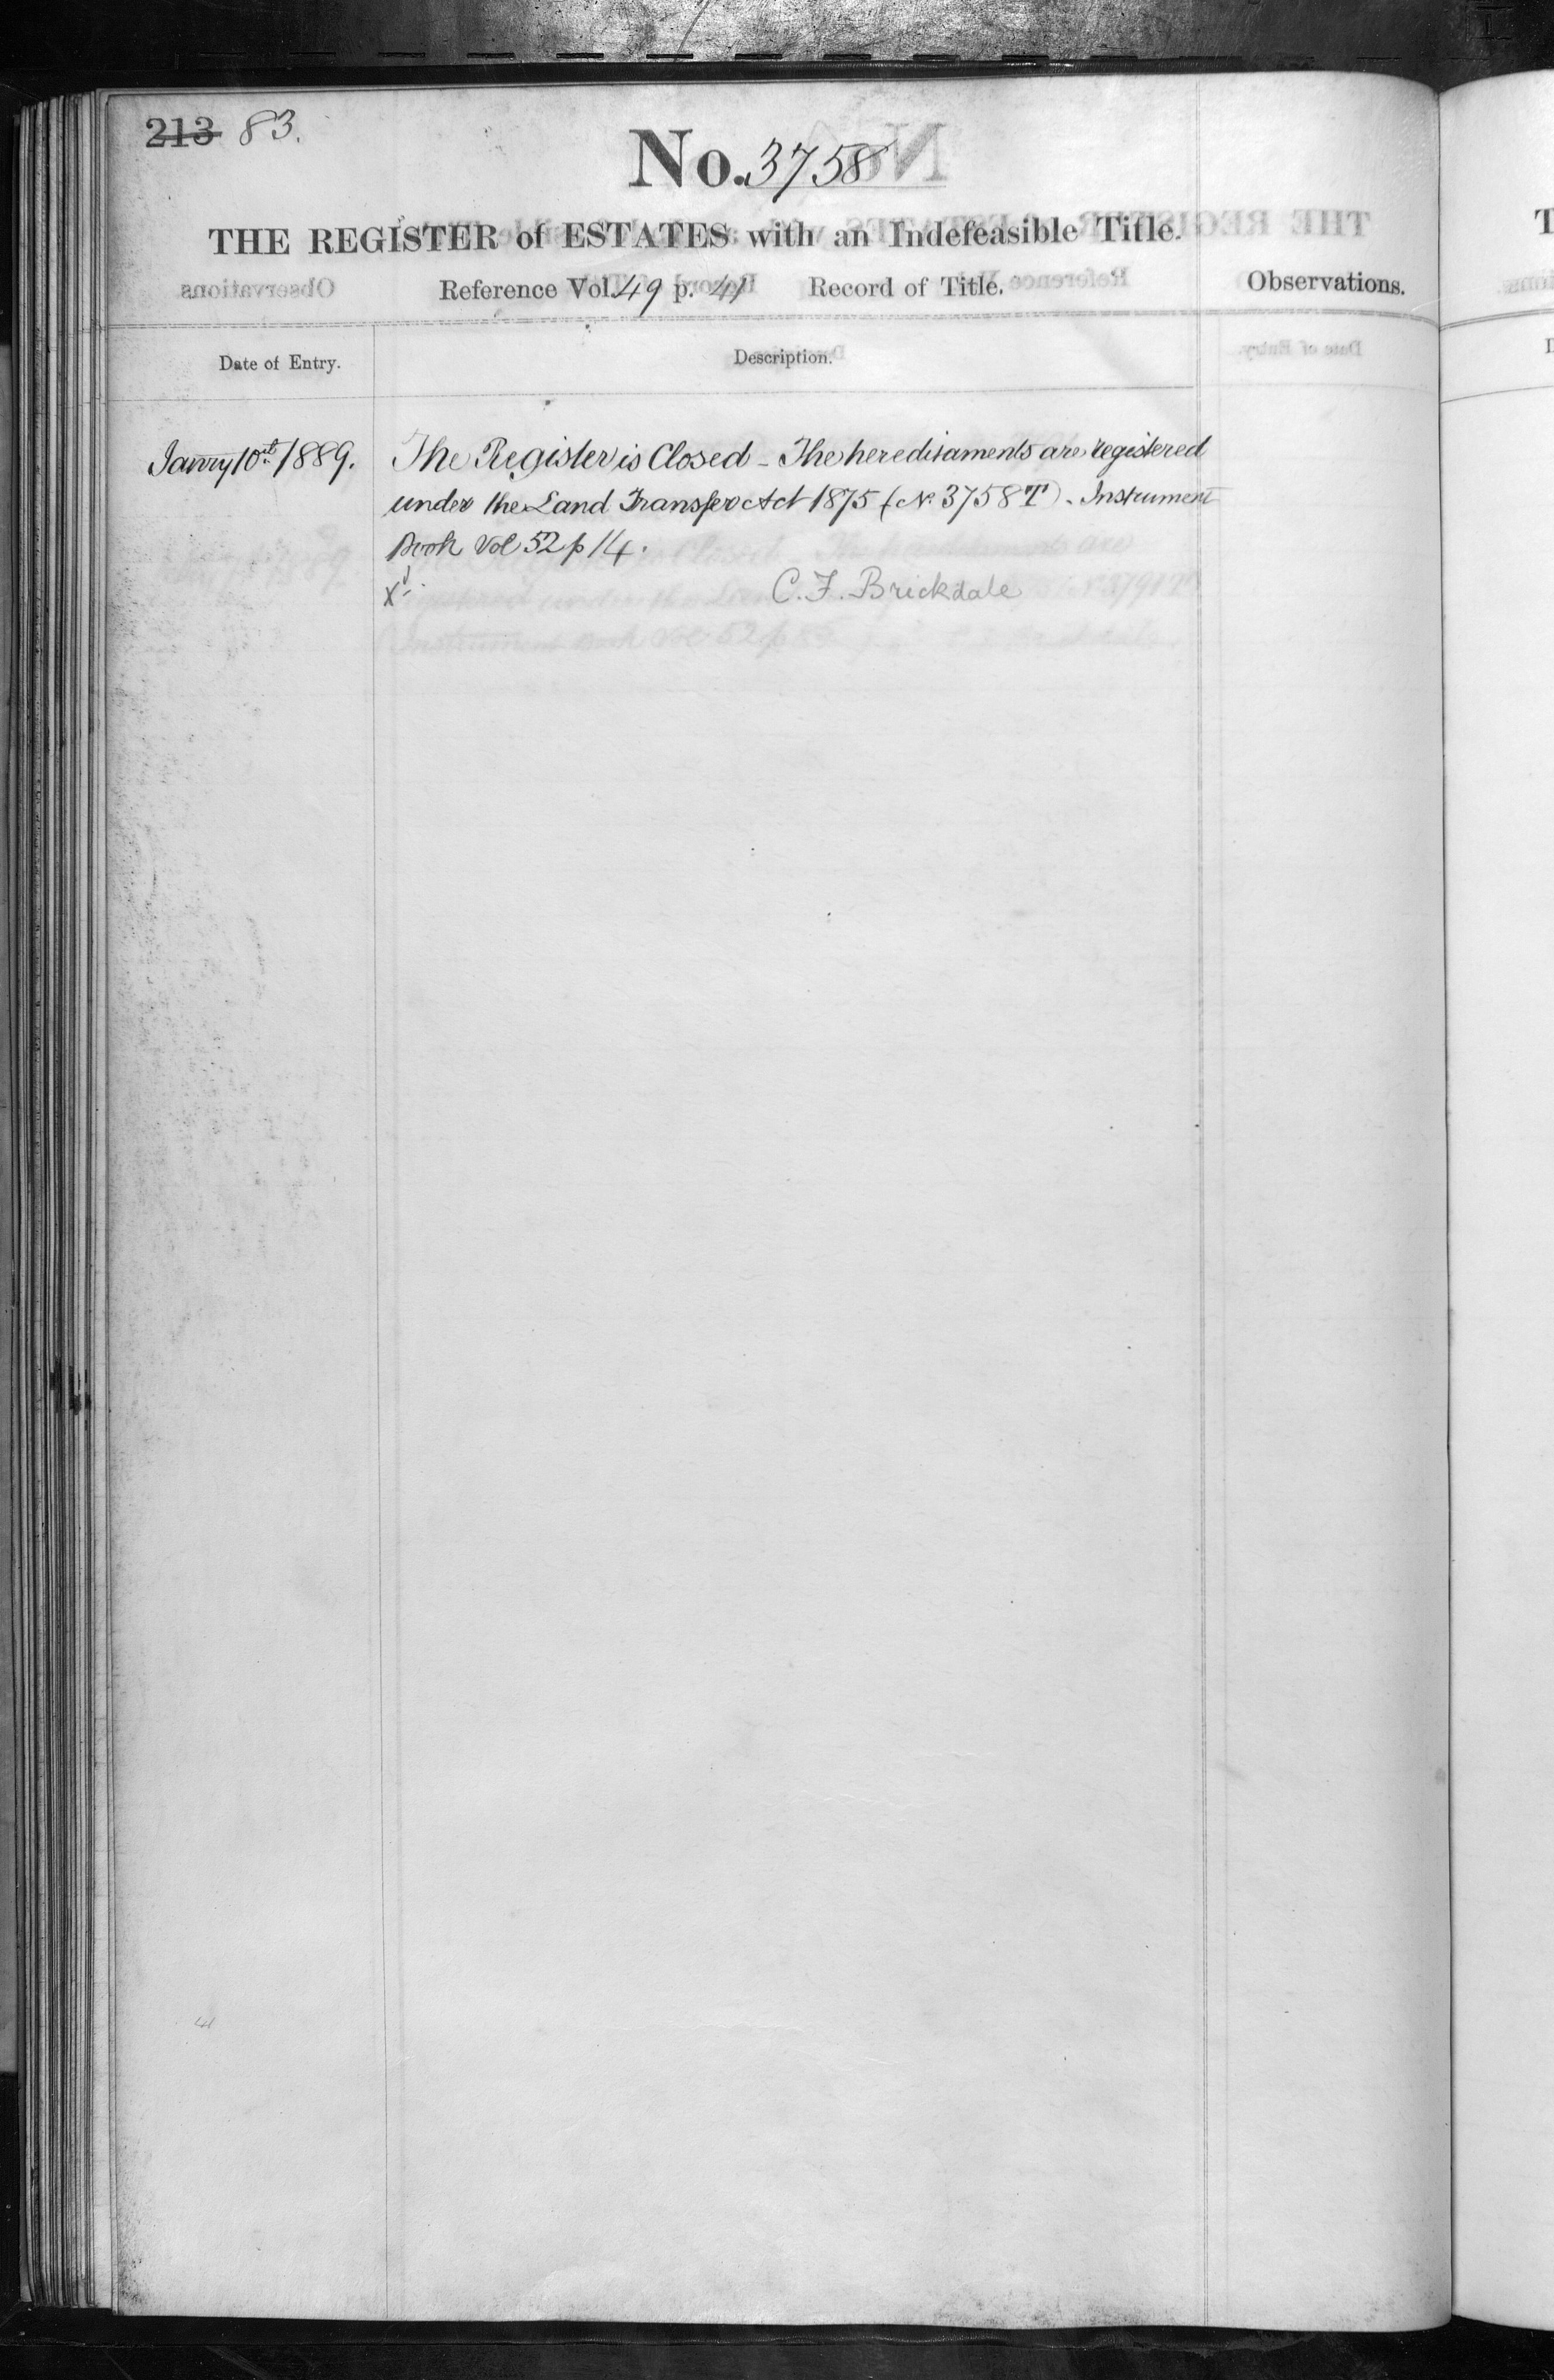 213 83.
No. 3758
THE REGISTER of ESTATES with an Indefeasible Title.
Reference Vol. 49 p. 41 Record of Title. Observations.
Date of Entry. Description.
Janry 10th 1889. The Register is Closed - The hereditaments are registered
under the Land Transfer Act 1875 (No. 3758T) - Instrument
Book Vol 52 p 14.
Xd. C. F. Brickdale